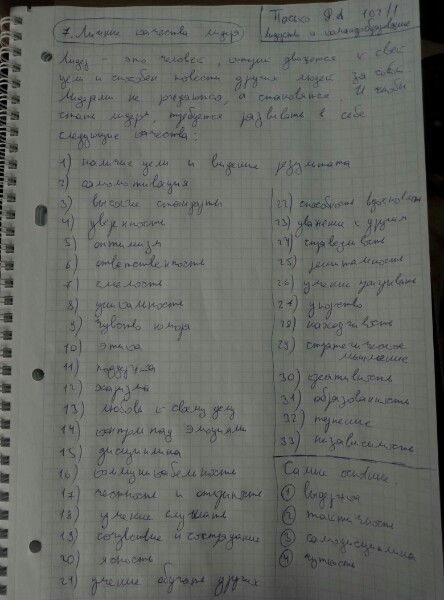 7. Личные качества лидера
Лидерство и командообразование
Лидер - это человек, который движется к своей
цели и способен повести других людей за собой.
Лидерами не рождаются, а становятся. И чтобы
стать лидером, требуется развивать в себе
следующие качества:
1) наличие цели и видение результата
2) самомотивация
3) высокие стандарты
4) уверенность
5) оптимизм
6) ответственность
7) смелость
8) уникальность
9) чувство юмора
10) этика
11)
12) харизма
13) любовь к своему делу
14) контроль над эмоциями
15) дисциплина
16) коммуникабельность
17) честность и открытость
18) умение слушать
19) сочувствие и сострадание
20) ясность
21) умение обучать других
22) способность вдохновлять
23) уважение к другим
24) справедливость
25) решительность
26) умение
27) упорство
28) находчивость
29) стратегическое
мышление
30) креативность
31) образованность
32) терпение
33) независимость
Самые основные:
1 выдержка
2 тактичность
3 самодисциплина
4 чуткость